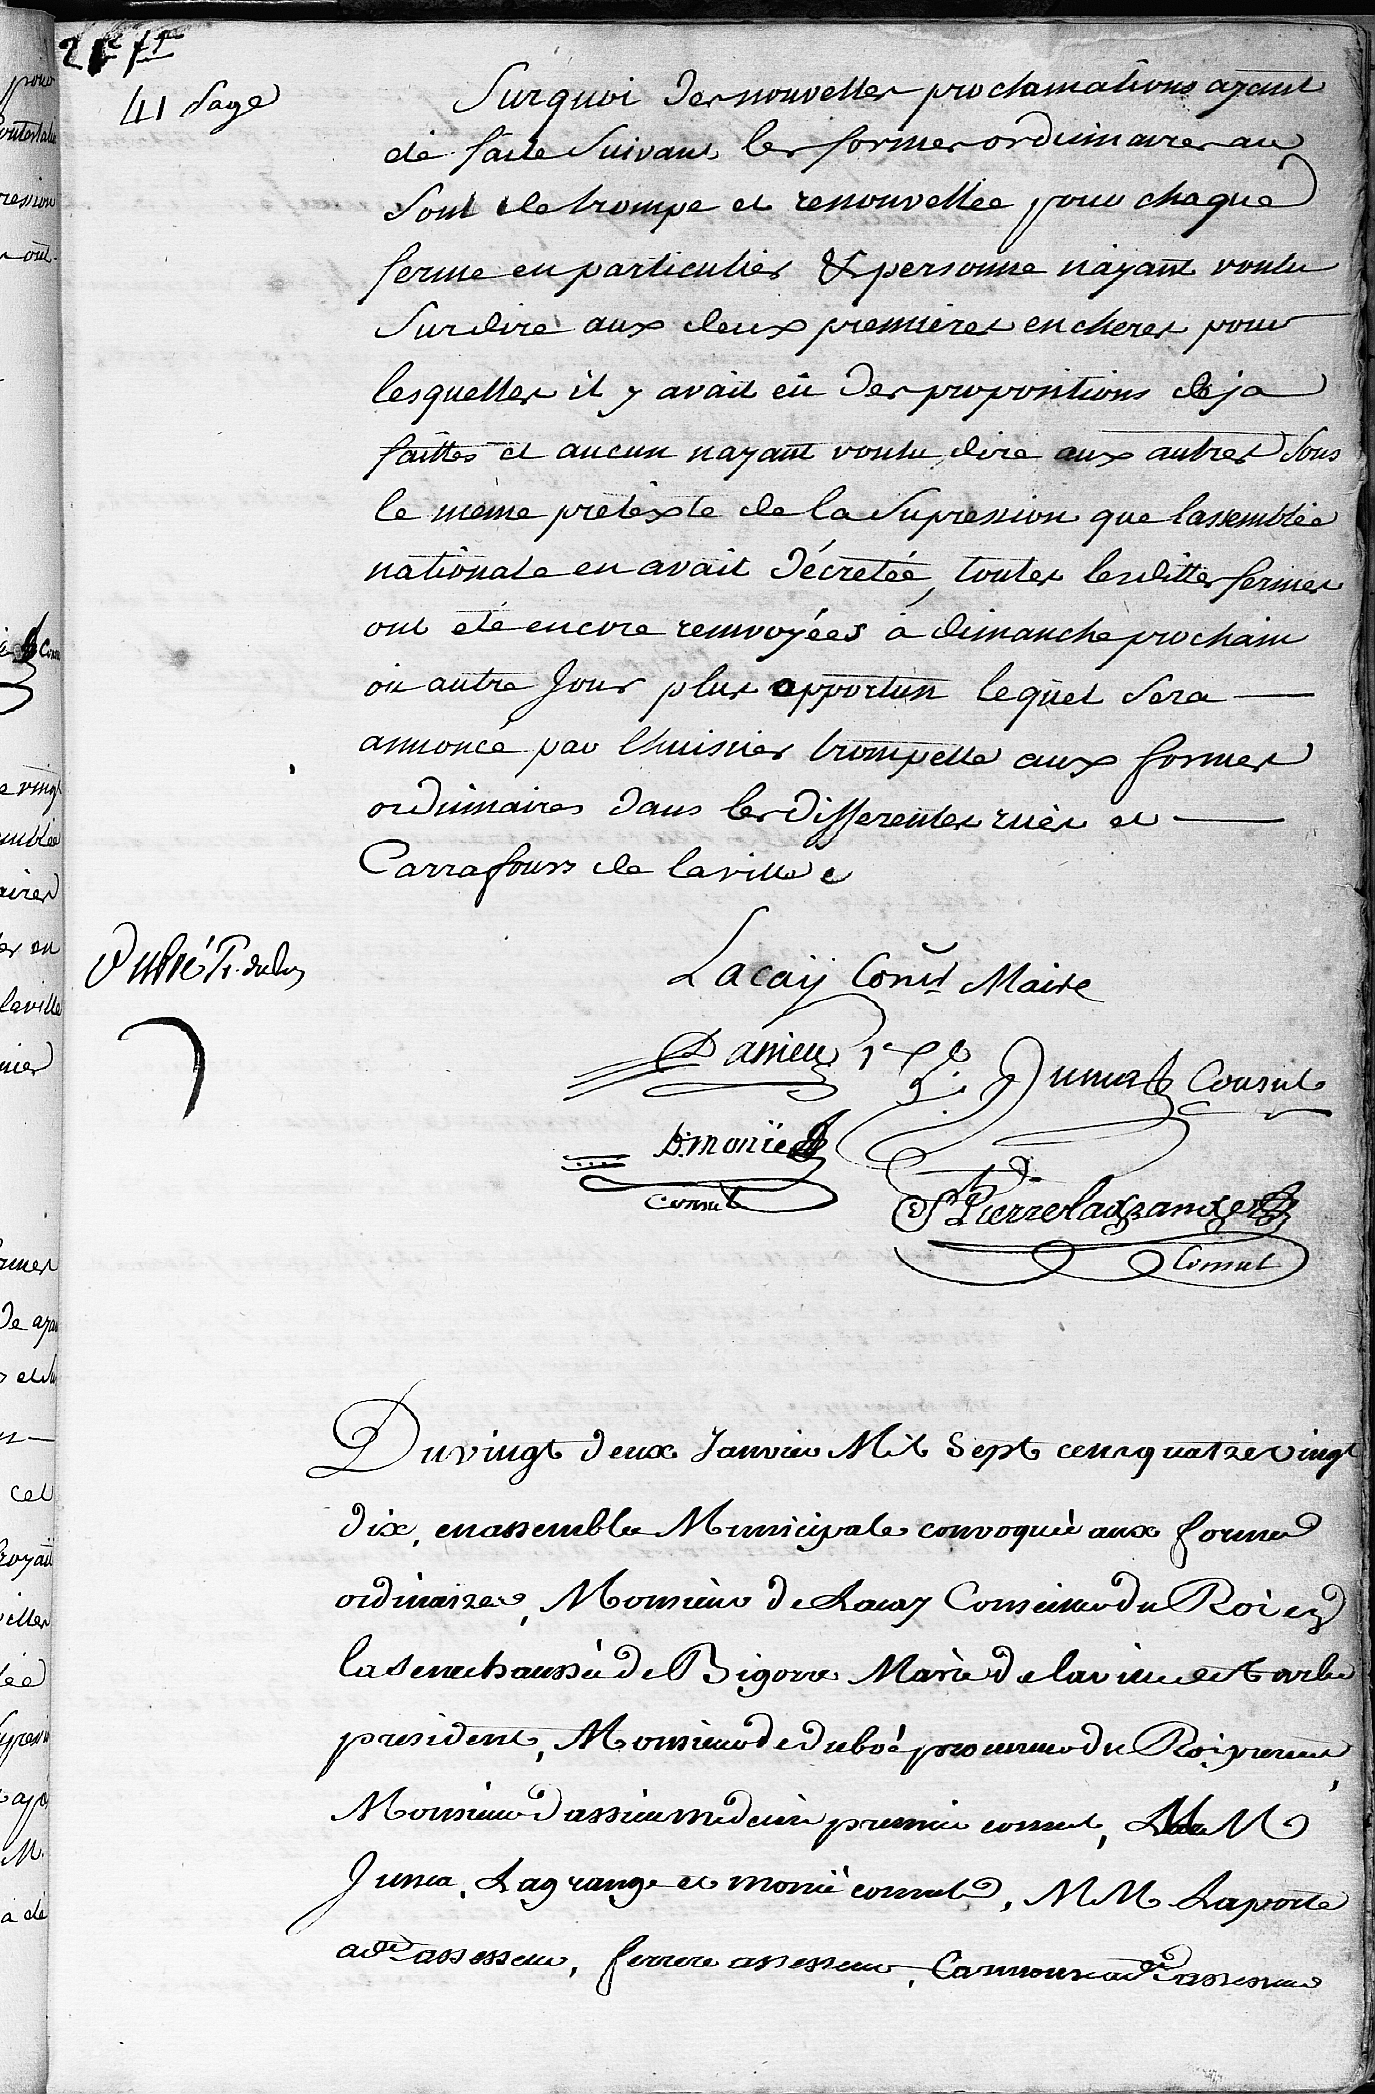 41 page
Surquoi des nouvelles proclamations ayant
été faite Suivant les formes ordinaires au
Sont de trompe et renouvellée pour chaque
ferme en particulier & personne nayant voulu
Surdire aux deux premieres encheres pour
lesquelles il y avait eû des propositions deja
faittes et aucun nayant voulu dire aux autres Sous
le même prétexte de la Supression que lassemblée
nationale en avait décrétée, toutes lesdittes fermes
ont été encore renvoyées à dimanche prochain
ou autre Jour plus opportun lequel Sera
annoncé par lhuissier trompette aux formes
ordinaires dans les differentes ruës et
Carrafours de la ville
Lacaÿ Cons.r Maire
Dassieu 1er
Junca Consul
D. monïe
Consul
Pierre lagrange
Consul
Du vingt deux Janvier Mil Sept cens quatre vingt
dix, en assemblée Municipale convoquée aux formes
ordinaires, Monsieur de Lacay Conseiller du Roi en
la Senechaussée de Bigorre Maire de la ville de Tarbe
president, Monsieur de duboé procureur du Roi present,
Monsieur dassieu medecin premier consul, M M
Junca, Lagrange et monïe consuls, M M Laporte
adt assesseur, ferrere assesseur, adt assesseur